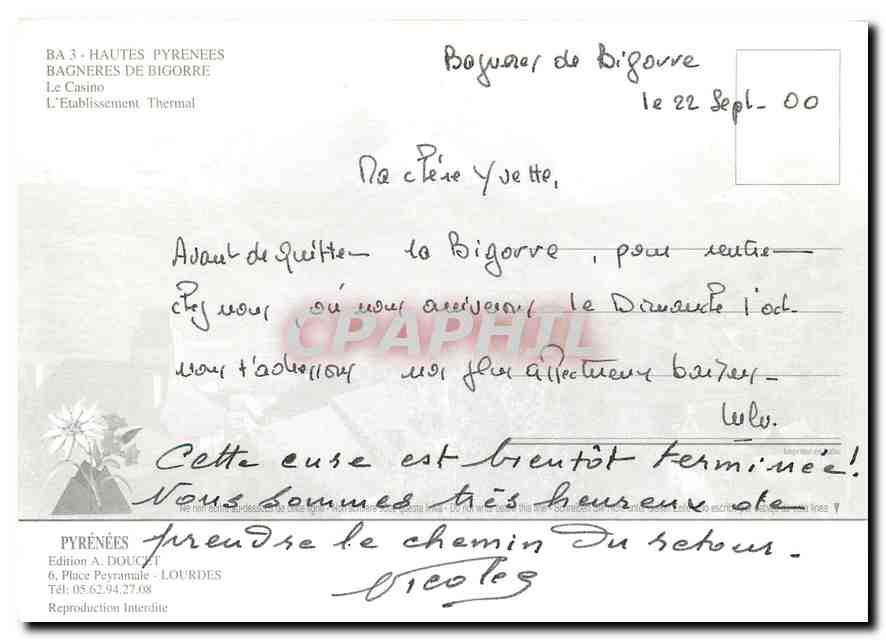 BA 3 - HAUTES PYRENEES
BAGNERES DE BIGORRE
Le Casino
L'Etablissement Thermal
Bagneres de Bigorre
le 22 Sept- 00
Ma chère Yvette,
Avant de quitter la Bigorre, pour rentrer
chez nous, où nous arriverons le Dimanche 1° oct.
nous t'adressons nos plus affectueux baisers-
Lulu.
CPAPHIL
Cette cure est bientôt terminée!
Nous sommes très heureux de
Ne rien écrire au-dessous de cette ligne - Non scrivere sotto questa linea - Do not write below this line - Schreiben Sie nicht unter dieser Linie - No escribir por debajo de esta línea
prendre le chemin du retour.
PYRÉNÉES
Edition A. DOUCET
6, Place Peyramale - LOURDES
Tél: 05.62.94.27.08
Reproduction Interdite